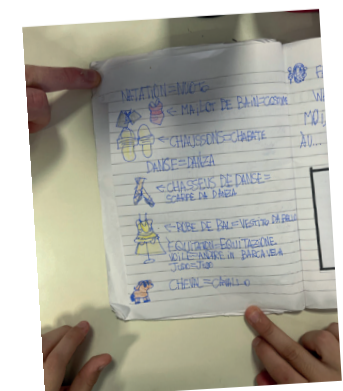 NATATION=NUOTO
MAILLOT DE BAIN=COSTUM
CHAUSSONS=CIABATTE
DANSE=DANZA
CHASSEUS DE DANSE=
SCARPE DA DANZA
ROBE DE BAL=VESTITO DA BALLO
EQUITATION=EQUITAZIONE
VOILE=ANDARE IN BARCA VELA
JUDO=JUDO
CHEVAL=CAVALLO